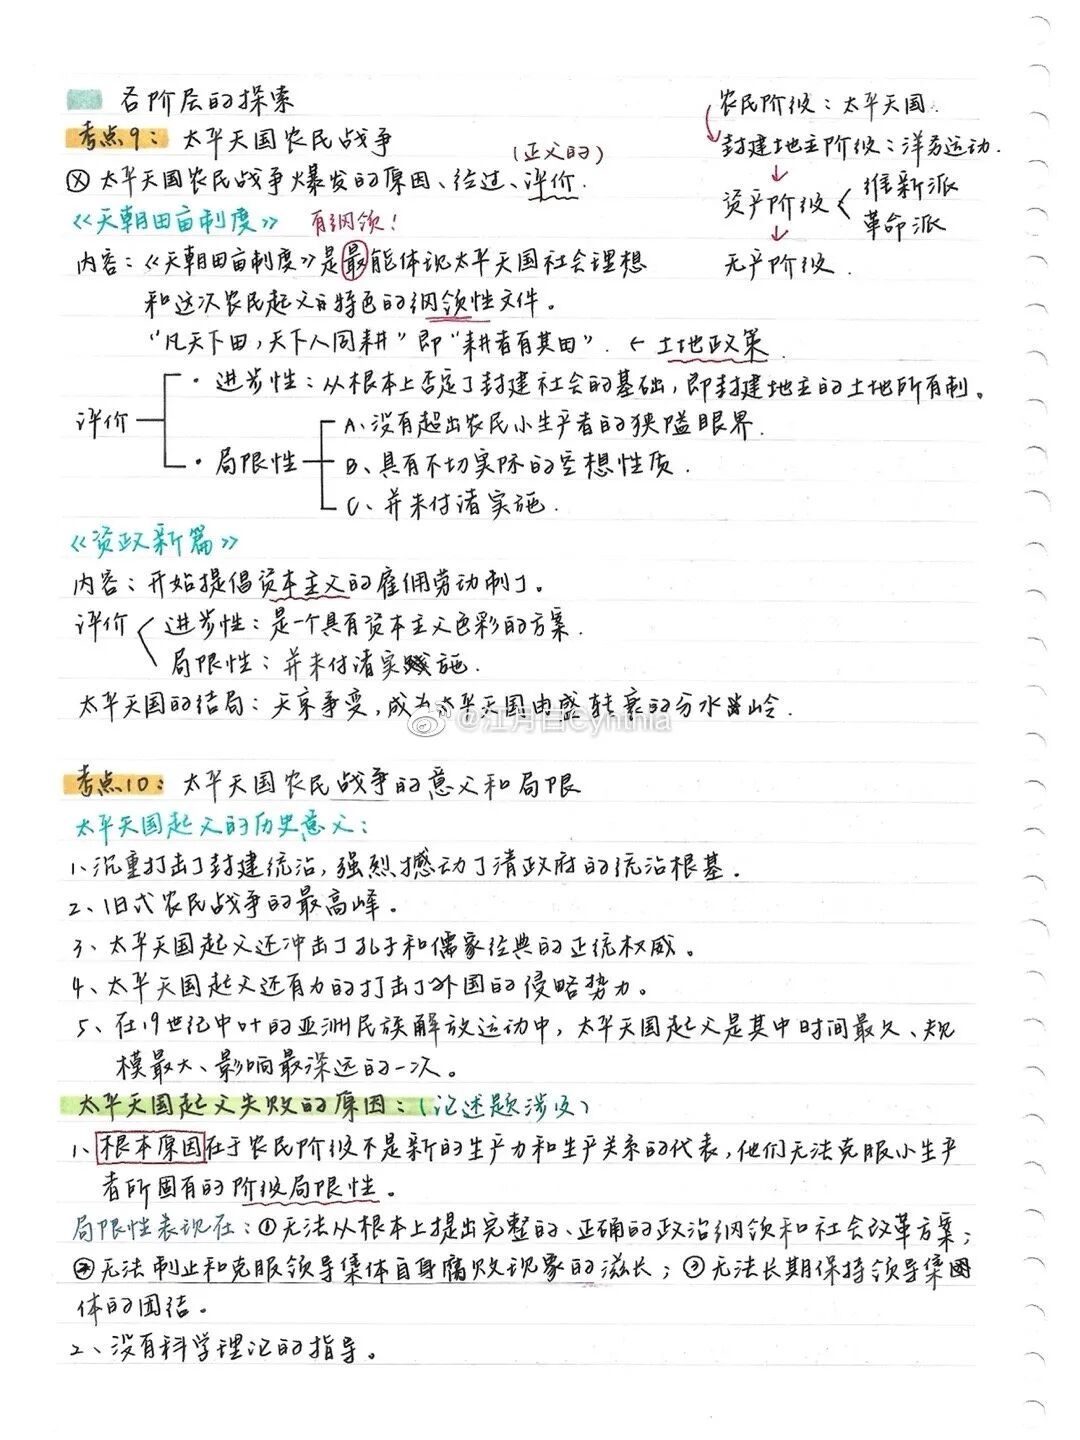 各阶层的探索
考点9：太平天国农民战争
（正义的）
⊗ 太平天国农民战争爆发的原因、经过、评价．
农民阶级：太平天国．
封建地主阶级：洋务运动．
资产阶级 < 维新派
革命派
无产阶级．
《天朝田亩制度》 有纲领！
内容：《天朝田亩制度》是最能体现太平天国社会理想
和这次农民起义的特色的纲领性文件。
“凡天下田，天下人同耕”即“耕者有其田”．← 土地政策．
评价
· 进步性：从根本上否定了封建社会的基础，即封建地主的土地所有制。
· 局限性
A、没有超出农民小生产者的狭隘眼界．
B、具有不切实际的空想性质．
C、并未付诸实施．
《资政新篇》
内容：开始提倡资本主义的雇佣劳动制了。
评价 进步性：是一个具有资本主义色彩的方案．
局限性：并未付诸实施．
太平天国的结局：天京事变，成为太平天国由盛转衰的分水岭．
@江月白Cynthia
考点10：太平天国农民战争的意义和局限
太平天国起义的历史意义：
1、沉重打击了封建统治，强烈撼动了清政府的统治根基。
2、旧式农民战争的最高峰。
3、太平天国起义还冲击了孔子和儒家经典的正统权威。
4、太平天国起义还有力的打击了外国的侵略势力。
5、在19世纪中叶的亚洲民族解放运动中，太平天国起义是其中时间最久、规
模最大、影响最深远的一次。
太平天国起义失败的原因：（论述题涉及）
1、根本原因在于农民阶级不是新的生产力和生产关系的代表，他们无法克服小生产
者所固有的阶级局限性。
局限性表现在：①无法从根本上提出完整的、正确的政治纲领和社会改革方案；
②无法制止和克服领导集体自身腐败现象的滋长；③无法长期保持领导集
体的团结。
2、没有科学理论的指导。